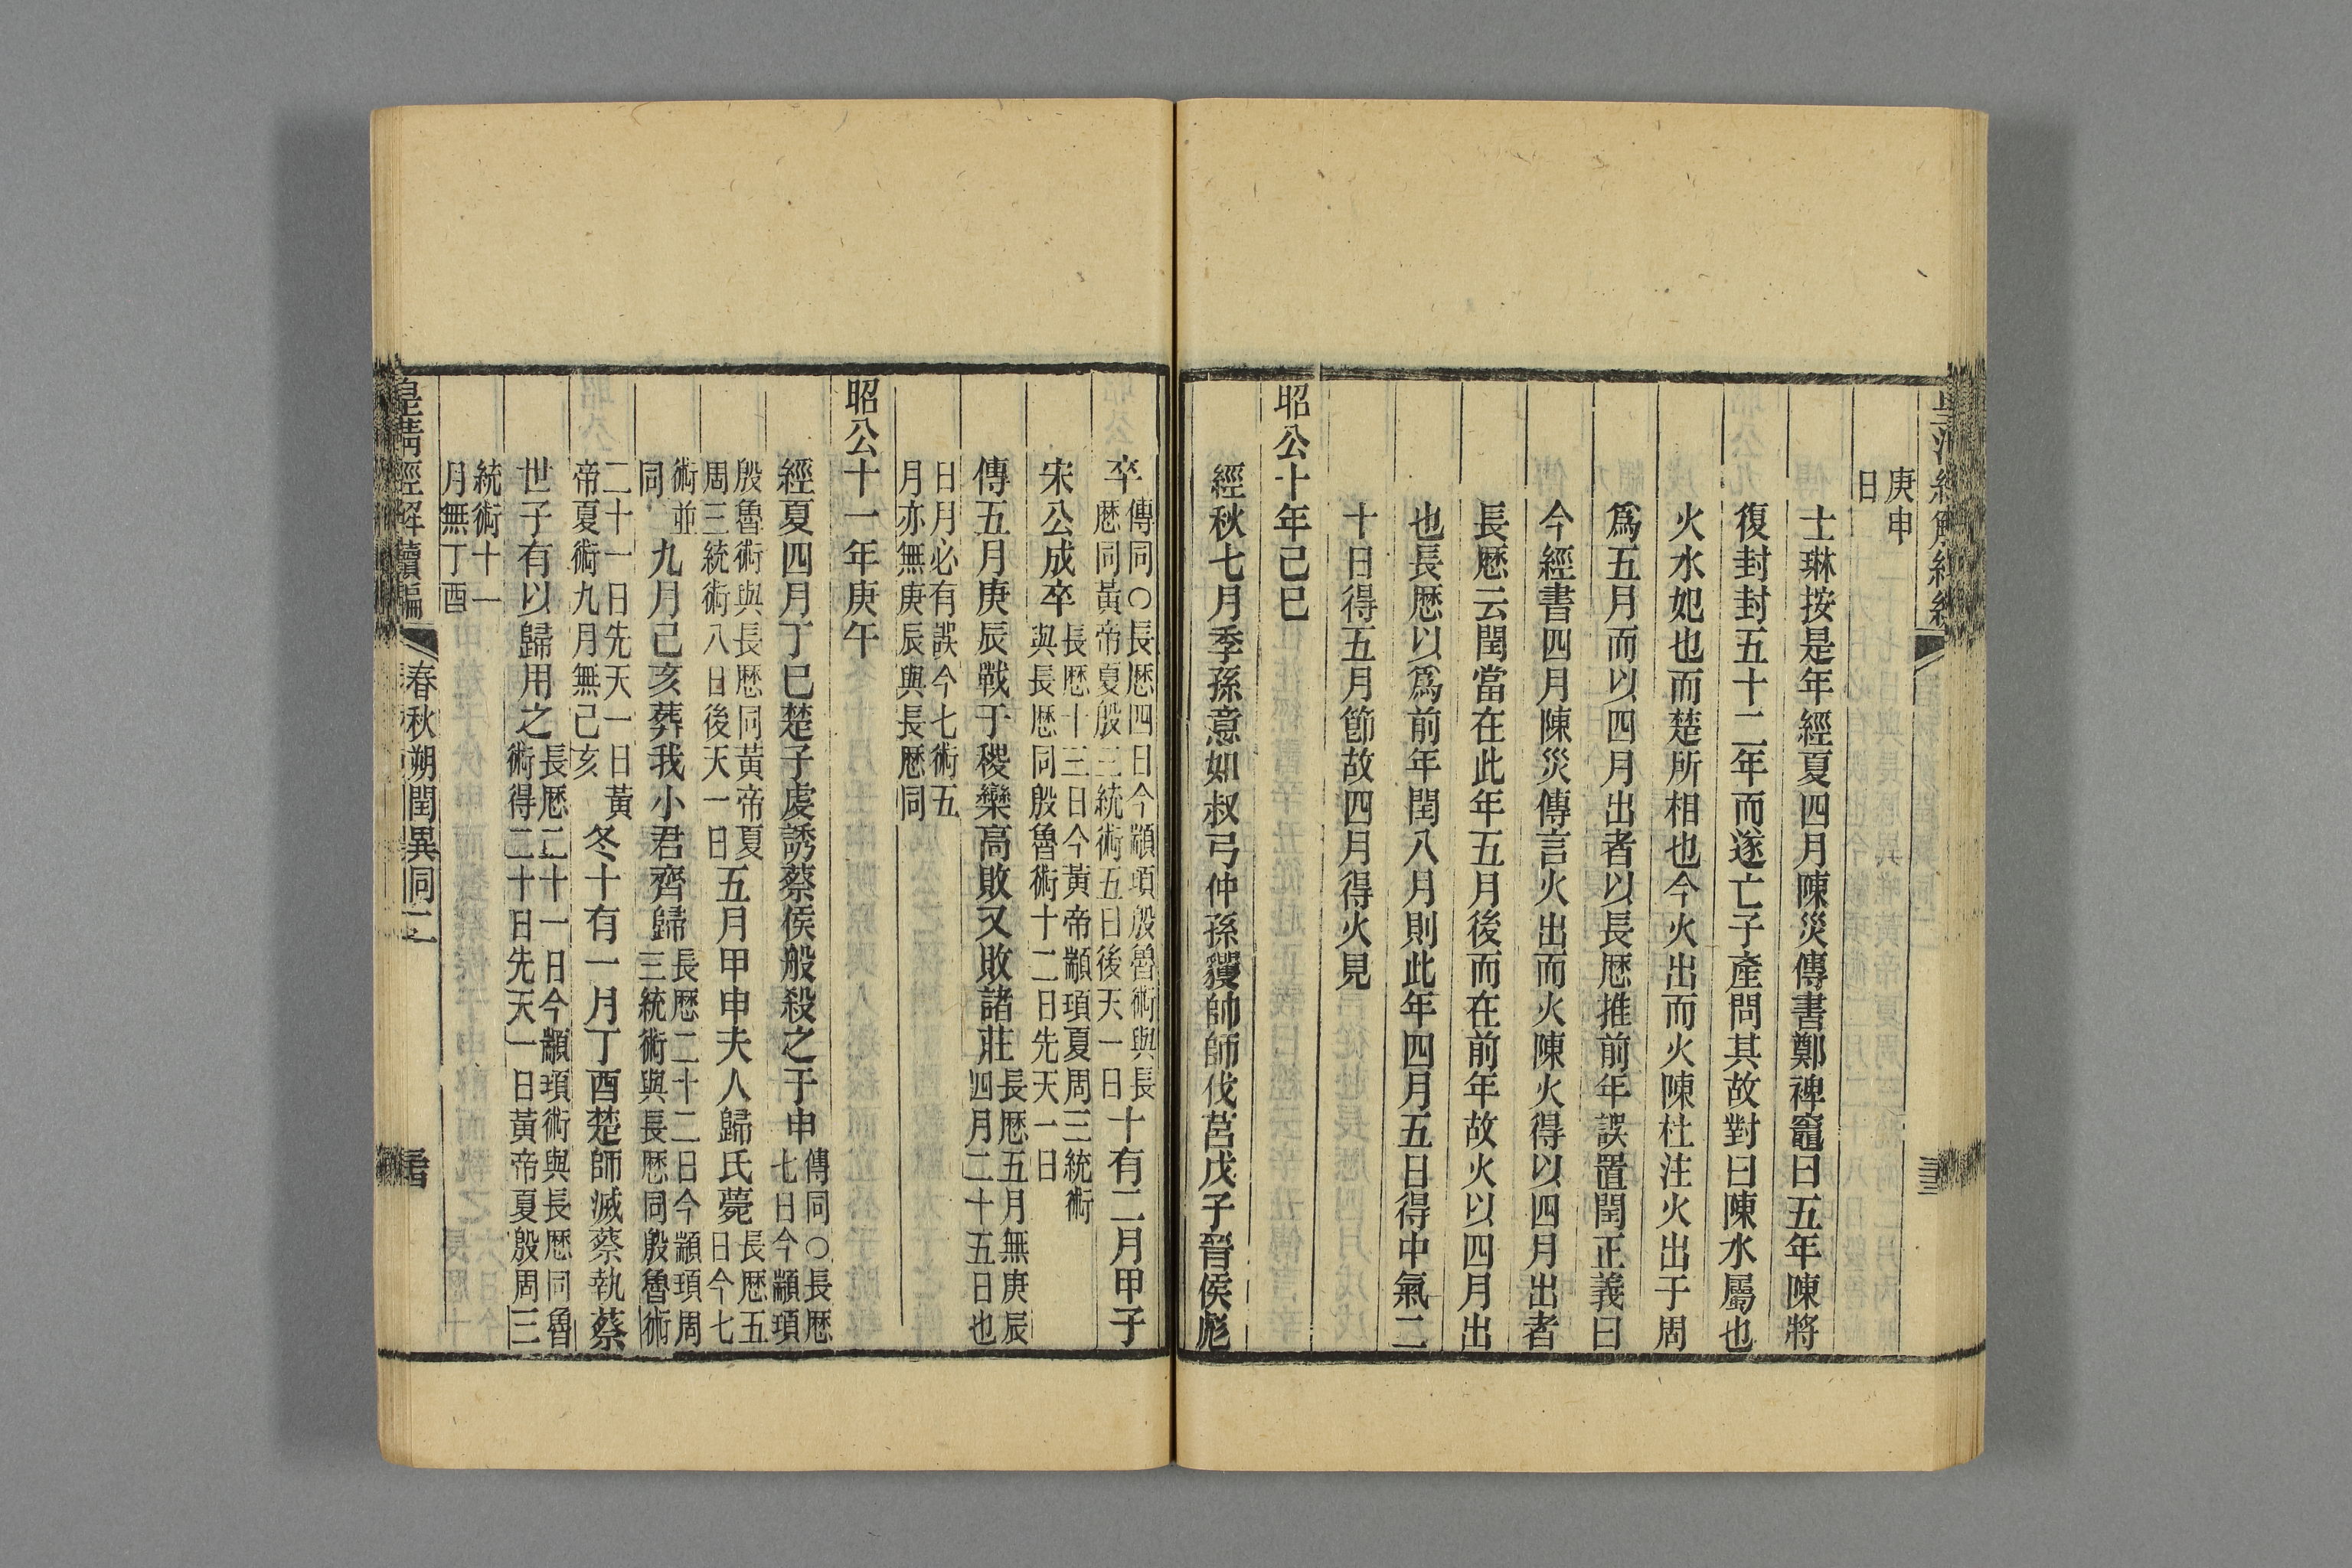 庚申
日
士琳按是年經夏四月陳災傳書鄭裨竈曰五年陳將
復封封五十二年而遂亡子產問其故對曰陳水屬也
火水妃也而楚所相也今火出而火陳杜注火出于周
爲五月而以四月出者以長厯推前年誤置閏正義曰
今經書四月陳災傳言火出而火陳火得以四月出者
長厯云閏當在此年五月後而在前年故火以四月出
也長厯以爲前年閏八月則此年四月五日得中氣二
十日得五月節故四月得火見
昭公十年己巳
經秋七月季孫意如叔弓仲孫貜帥師伐莒戊子晉侯彪
卒傳同○長厯四日今顓頊殷魯術與長厯同黃帝夏殷三統術五日後天一日十有二月甲子
宋公成卒長厯十三日今黃帝顓頊夏周三統術與長厯同殷魯術十二日先天一日
傳五月庚辰戰于稷欒高敗又敗諸莊長厯五月無庚辰四月二十五日也
日月必有誤今七術五
月亦無庚辰與長厯同
昭公十一年庚午
經夏四月丁巳楚子虔誘蔡侯般殺之于申傳同○長厯七日今顓頊
殷魯術與長厯同黃帝夏周三統術八日後天一日五月甲申夫人歸氏薨長厯五日今七
術並同九月己亥葬我小君齊歸長厯二十二日今顓頊周三統術與長厯同殷魯術
二十一日先天一日黃帝夏術九月無己亥冬十有一月丁酉楚師滅蔡執蔡
世子有以歸用之長厯二十一日今顓頊術與長厯同魯術得二十日先天一日黃帝夏殷周三
統術十一
月無丁酉
皇清經解續編
春秋朔閏異同二